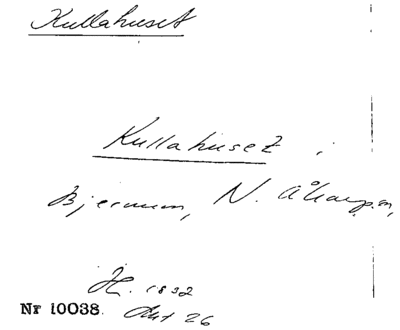 Kullahuset
Kullahuset i
Bjernum, N. Åkarps sn,
H. 1832
Akt 26
Nr 10038.